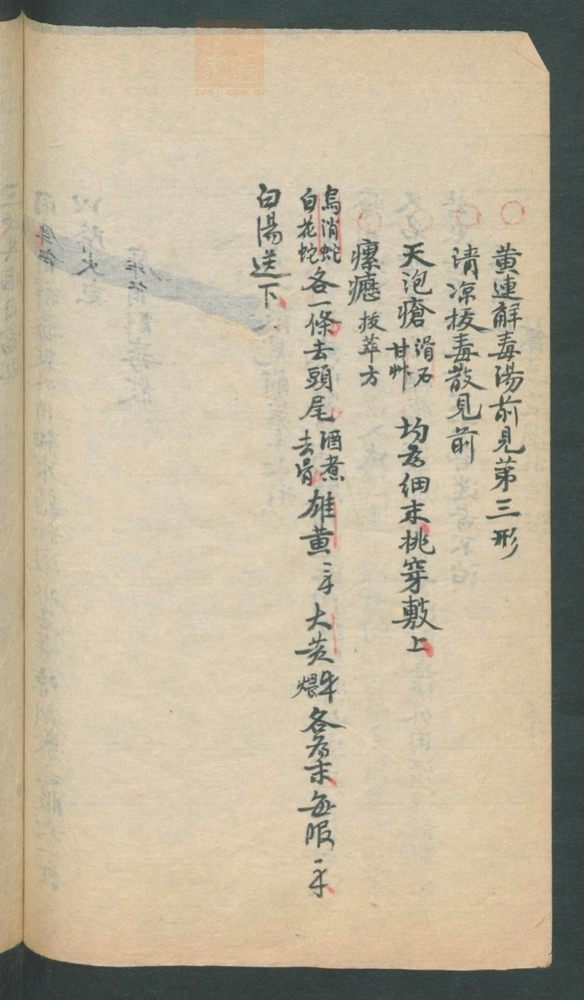 黄連解毒湯前見第三形
清凉拔毒散見前
天泡瘡 滑石 甘艸 均為細末挑穿敷上
瘰癧 拔萃方
烏消蛇 白花蛇 各一條去頭尾 酒煮 去骨 雄黄 大黄 煨 各為末每服
白湯送下